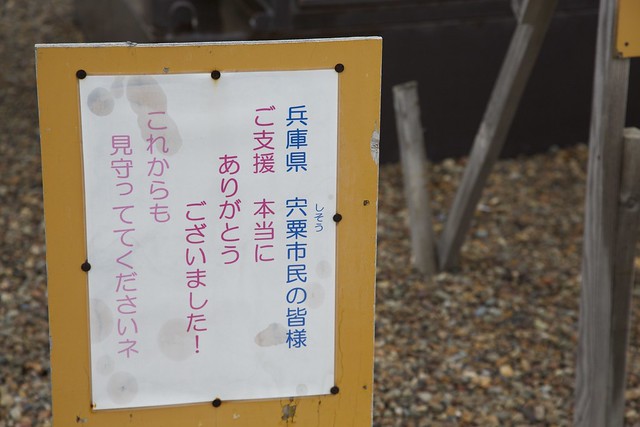 兵庫県 宍粟市民の皆様
しそう
ご支援 本当に
ありがとう
ございました!
これからも
見守っててくださいネ